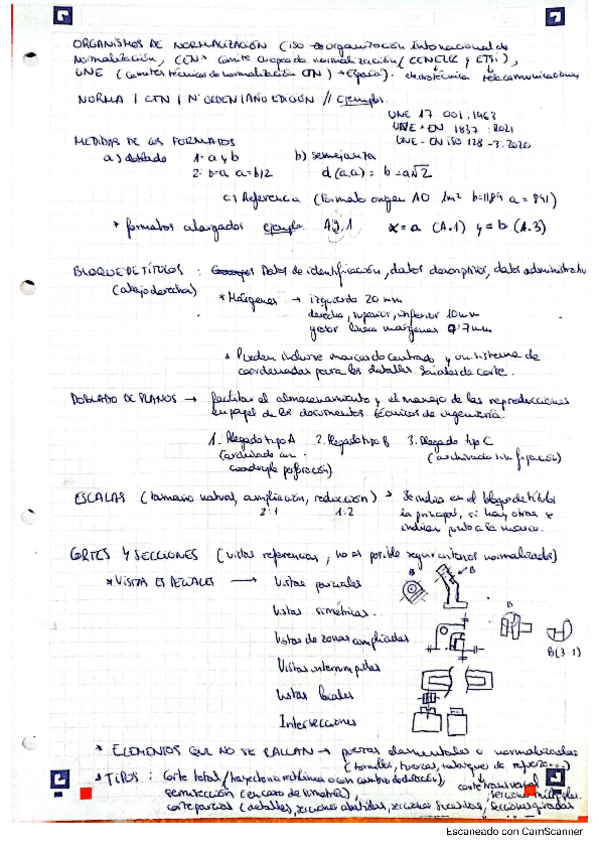 ORGANISMOS DE NORMALIZACIÓN (ISO organización Internacional de
Normalización, CEN comite europeo de normalización (CENELEC y ETSI),
UNE (comites técnicos de normalización CTN) → España). electrotécnica telecomunicaciones
NORMA / CTN / Nº ORDEN / AÑO EDICIÓN // Ejemplos
UNE 17 001:1963
UNE-EN 1837 :2021
UNE-EN ISO 128-3:2020
MEDIDAS DE LOS FORMATOS
a) doblado 1: a y b b) semejanza
2: b=a a=b/2 d(a,a) = b = a√2
c) Referencia (Formato origen A0 1m² b=1189 a = 841)
* formatos alargados ejemplo A3.1 x=a (A.1) y=b (A.3)
BLOQUE DE TÍTULOS : Datos de identificación, datos descriptivos, datos administrativ
(abajo derecha) * Márgenes → izquierdo 20 mm
derecho, superior, inferior 10 mm
grosor línea márgenes 0'7 mm
* Pueden incluirse marcas de centrado y un sistema de
coordenadas para los detalles. Señales de corte.
DOBLADO DE PLANOS → facilitar el almacenamiento y el manejo de las reproducciones
en papel de los documentos técnicos de ingeniería.
1. Plegado tipo A 2. Plegado tipo B 3. Plegado tipo C
(archivado con (archivado sin fijación)
cuadruple perforación)
ESCALAS (tamaño natural, ampliación, reducción) → Se indica en el bloque de títulos
2:1 1:2 la principal, si hay otras se
indican junto a la marca.
CORTES Y SECCIONES (vistas referencias, no es posible seguir criterios normalizados)
* VISTAS ESPECIALES → Vistas parciales
B B
Vistas simétricas.
B
Vistas de zonas ampliadas
B(3:1)
Vistas interrumpidas
Vistas locales
Intersecciones
* ELEMENTOS QUE NO SE RALLAN → piezas elementales o normalizadas
(tornillos, tuercas, tabiques de refuerzo...)
* TIPOS : Corte total / trayectoria rectilínea o con cambio de dirección), corte transversal
semisección (en caso de simetría), secciones múltiples.
corte parcial (detalles), secciones abatidas, secciones sucesivas, secciones giradas
Escaneado con CamScanner